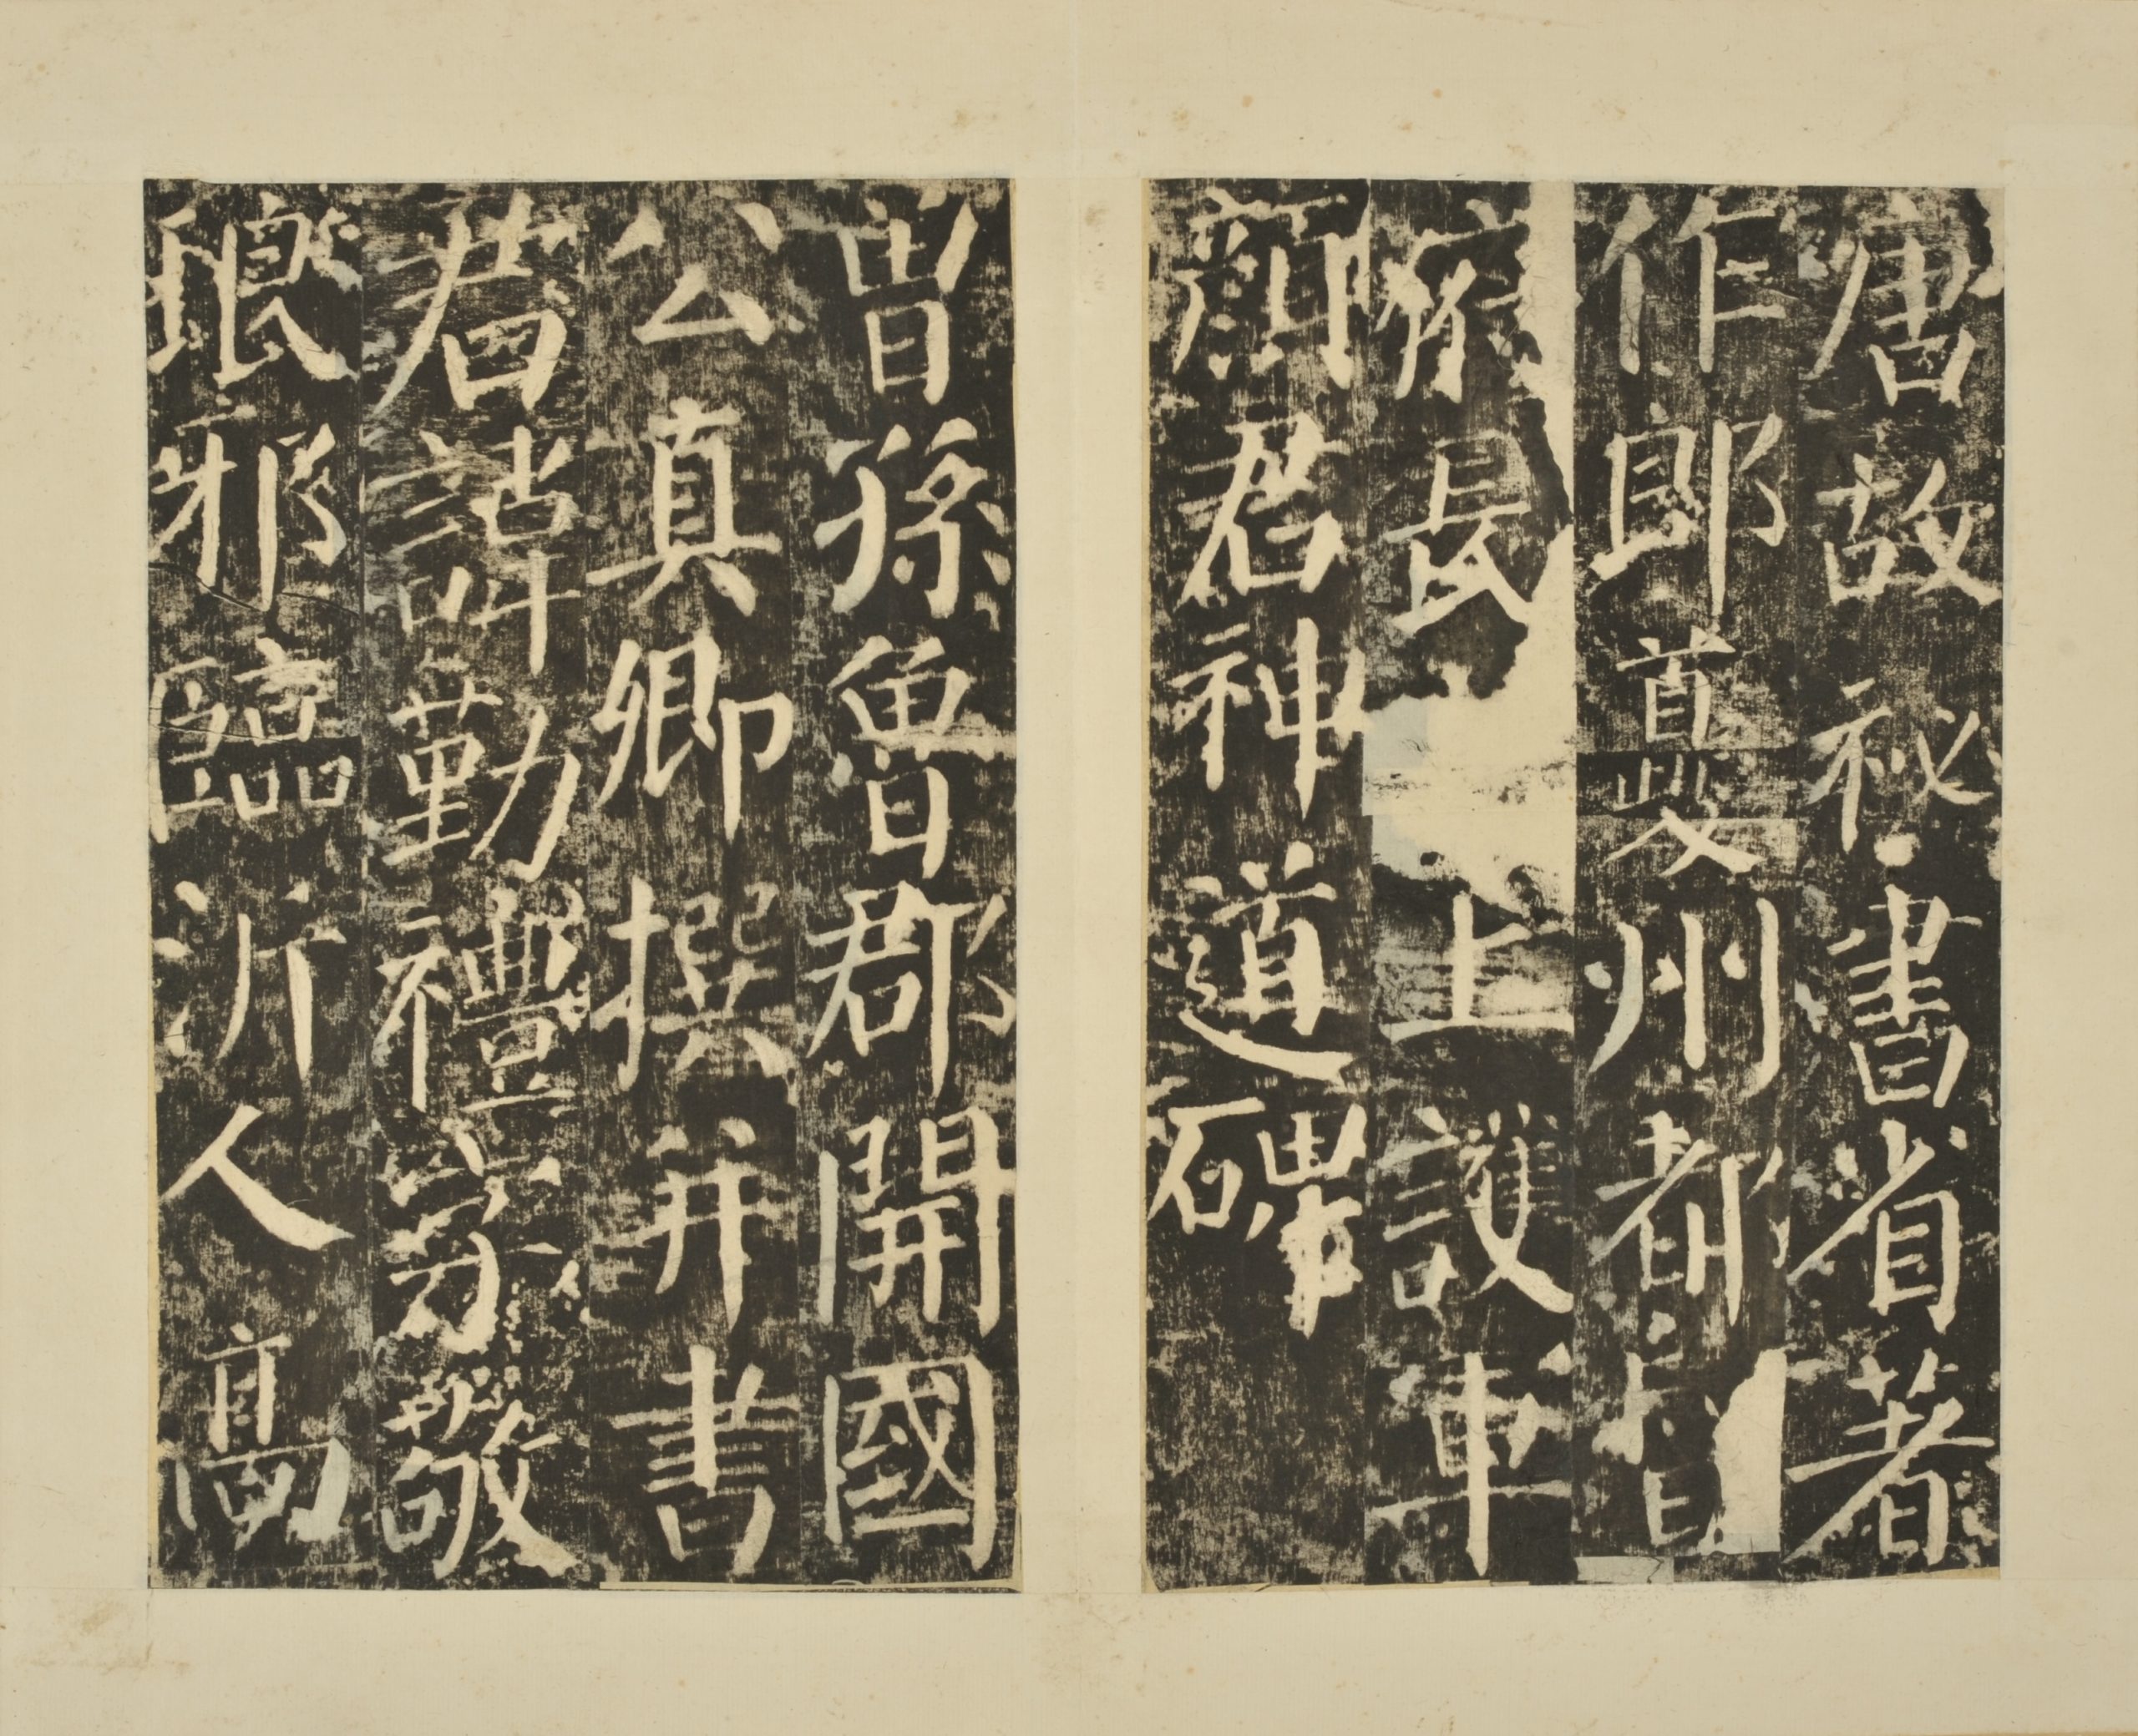 唐故祕書省著
作郎夔州都督
府長上護軍
顏君神道碑
曾孫魯郡開國
公真卿撰并書
君諱勤禮字敬
琅邪臨沂人高